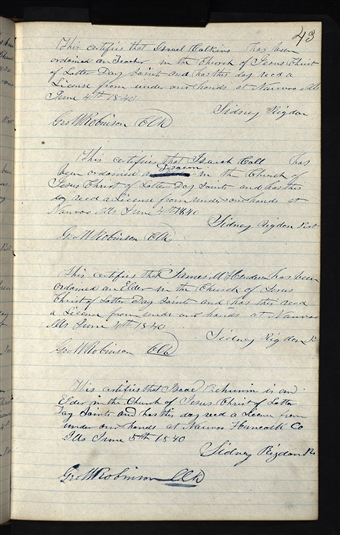 43
This certifies that Israel Calkins has been
ordained an Teacher in the Church of Jesus Christ
of Latter Day Saints and has this day recd a
License from under our hands at Nauvoo Ills
June 4th 1840
Sidney Rigdon
Geo W Robinson Clk
This certifies that Isaiah Call has
been ordained a Deacon in the Church of
Jesus Christ of Latter Day Saints and has this
day recd a License from under our hands at
Nauvoo Ills June 4th 1840
Sidney Rigdon Prst
Geo W Robinson Clk
This certifies that James M Henderson has been
ordained an Elder in the Church of Jesus
Christ of Latter Day Saints and has this recd
a License from under our hands at Nauvoo
Ills June 4th 1840
Sidney Rigdon
Geo W Robinson Clk
This certifies that Isaac Behunin is an
Elder in the Church of Jesus Christ of Latter
Day Saints and has this day recd a License from
under our hands at Nauvoo Hancock Co
Ills June 5th 1840
Sidney Rigdon
Geo W Robinson Clk